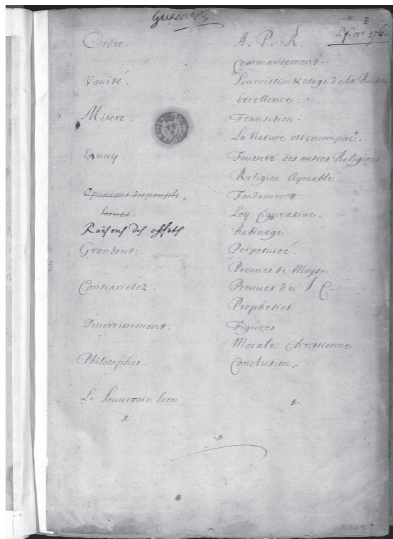 3
nº 176.
Ordre.
Vanité.
Misere
Ennuy
Opinions du peuple
saines.
Raisons des effets
Grandeur.
Contrarietez.
Divertissement.
Philosophes
Le Souverain bien
A. P. R.
Commancement.
Soumission & usage de la Raison
Excellence
Transition.
La Nature est corrompue.
Fausseté des autres Religions
Religion aymable
Fondement
Loy figurative.
Rabinage.
Perpetuité.
Preuves de Moyse.
Preuves de J. C.
Propheties
Figures
Morale chrestienne
Conclusion.